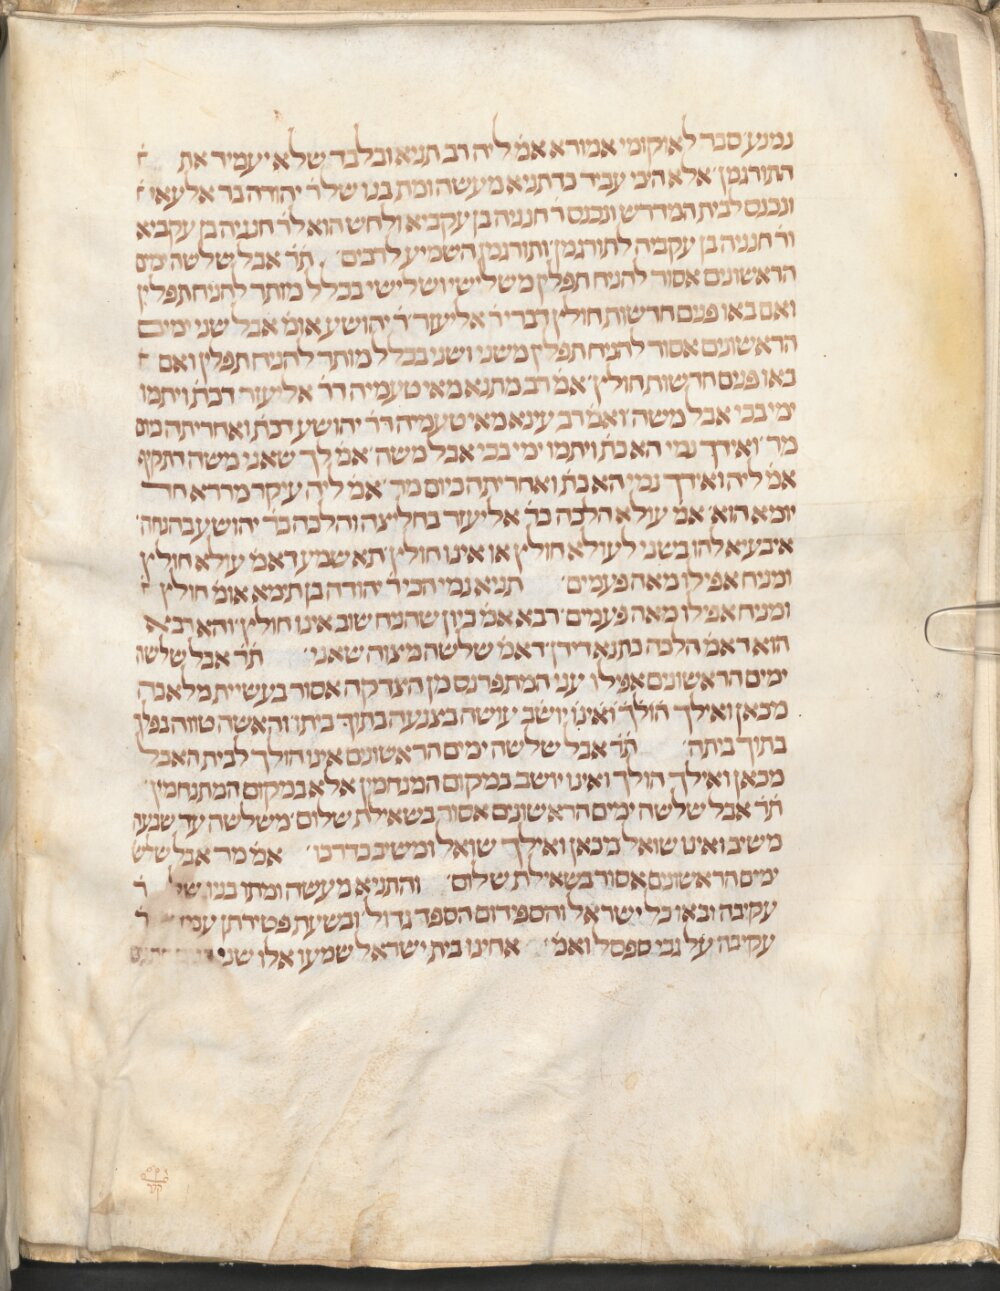 נמנע׳ סבר לאוקומי אמורא אמ׳ ליה רב תניא ובלבד שלא יעמיד את
התורגמן׳ אלא היכי עביד כדתניא מעשה ומת בנו של ר׳ יהודה בר אלעאי
ונכנס לבית המדרש ונכנס ר׳ חנניה בן עקביא ולחש הוא לר׳ חנניה בן עקביא
ור׳ חנניה בן עקביה לתורגמן ותורגמן השמיע לרבים׳ ת״ר אבל שלשה ימים
הראשונים אסור להניח תפלין משלישי ושלישי בכלל מותר להניח תפלין
ואם באו פנים חדשות חולץ דברי ר׳ אליעזר ר׳ יהושע אומ׳ אבל שני ימים
הראשונים אסור להניח תפלין משני ושני בכלל מותר להניח תפלין ואם
באו פנים חדשות חולץ׳ אמ׳ רב מתנא מאי טעמיה דר׳ אליעזר דכת׳ ויתמו
ימי בכי אבל משה׳ ואמ׳ רב עינא מאי טעמיה דר׳ יהושע דכת׳ ואחריתה כיום
מר׳ ואידך נמי האכת׳ ויתמו ימי בכי אבל משה׳ אמ׳ לך שאני משה דתקיף
אמ׳ ליה ואידך נמי האכת׳ ואחריתה כיום מר׳ אמ׳ ליה עיקר מררא חד
יומא הוא׳ אמ׳ עולא הלכה כר׳ אליעזר בחליצה והלכה כר׳ יהושע בהנחה׳
איבעיא להו בשני לעולא חולץ או אינו חולץ׳ תא שמע דאמ׳ עולא חולץ
ומניח אפילו מאה פעמים׳ תניא נמי הכי ר׳ יהודה בן תימא אומ׳ חולץ
ומניח אפילו מאה פעמים׳ רבא אמ׳ כיון שהניח שוב אינו חולץ׳ והא רבא
הוא דאמ׳ הלכה כתנא דידן דאמ׳ שלשה מיצוה שאני׳ ת״ר אבל שלשה
ימים הראשונים אפילו עני המתפרנס מן הצדקה אסור בעשיית מלאכה
מכאן ואילך הולך ואינו יושב עושה בצנעה בתוך ביתו והאשה טווה בפלך
בתוך ביתה׳ ת״ר אבל שלשה ימים הראשונים אינו הולך לבית האבל
מכאן ואילך הולך ואינו יושב במקום המנחמין אלא במקום המתנחמין׳
ת״ר אבל שלשה ימים הראשונים אסור בשאילת שלום׳ משלשה עד שבעה
משיב ואינו שואל מיכאן ואילך שואל ומשיב כדרכו׳ אמ׳ מר אבל שלש
ימים הראשונים אסור בשאילת שלום׳ והתניא מעשה ומתו בניו של ר׳
עקיבה ובאו כל ישראל והספידום הספד גדול׳ ובשעת פטירתן עמד ר׳
עקיבה על גבי ספסל ואמ׳ אחינו בית ישראל שמעו אלו שני